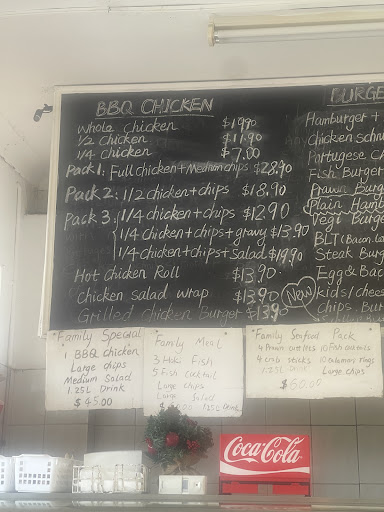 BBQ CHICKEN
Whole chicken $19.90
1/2 chicken $11.90
1/4 chicken $7.00
Pack 1: Full chicken + Medium chips $28.90
Pack 2: 1/2 chicken + chips $18.90
Pack 3: 1/4 chicken + chips $12.90
1/4 chicken + chips + gravy $13.90
1/4 chicken + chips + Salad $19.90
Hot chicken Roll $13.90
Chicken salad wrap $13.90
Grilled Chicken Burger $13.90
BURGE
Hamburger +
Chicken schn
Portugese c
Fish Burger
Prawn Burg
Plain Hamb
Vegi Burg
BLT (Bacon.
Steak Burg
Egg & Bac
New kids/chees
Chips Bu
Family Special
1 BBQ chicken
Large chips
Medium Salad
1.25L Drink
$45.00
Family Meal
3 Hoki Fish
5 Fish cocktail
Large chips
Large Salad
1.25L Drink
Family Seafood Pack
4 Prawn cutlets 10 Fish cocktails
4 crab sticks 10 Calamary rings
1.25L Drink Large chips
Coca-Cola